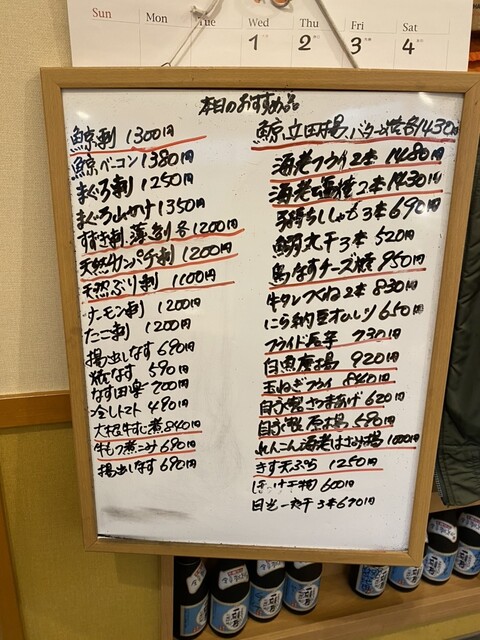 Sun Mon Tue Wed Thu Fri Sat
1 2 3 4
本日のおすすめ品
鯨刺 1300円
鯨ベーコン 1380円
まぐろ刺 1250円
まぐろ山かけ 1350円
すずき刺、薄造り各1200円
天然カンパチ刺 1200円
天然ぶり刺 1100円
サーモン刺 1200円
たこ刺 1200円
揚出しなす 690円
焼なす 590円
なす田楽 700円
冷しトマト 490円
大根牛すじ煮 840円
牛もつ煮こみ 690円
揚出しなす 690円
鯨、立田揚、バター焼各1430円
海老フライ 2本 1480円
海老塩焼 2本 1430円
子持ちししゃも 3本 690円
鰯丸干 3本 520円
馬なすチーズ焼 950円
牛タンつくね 2本 830円
にら納豆オムレツ 650円
フライドポテト 730円
白魚唐揚 920円
玉ねぎフライ 840円
自家製さつまあげ 620円
自家製厚揚 590円
れんこん海老はさみ揚 1000円
きす天ぷら 1250円
ほっけ干物 600円
目光一夜干 3本 690円